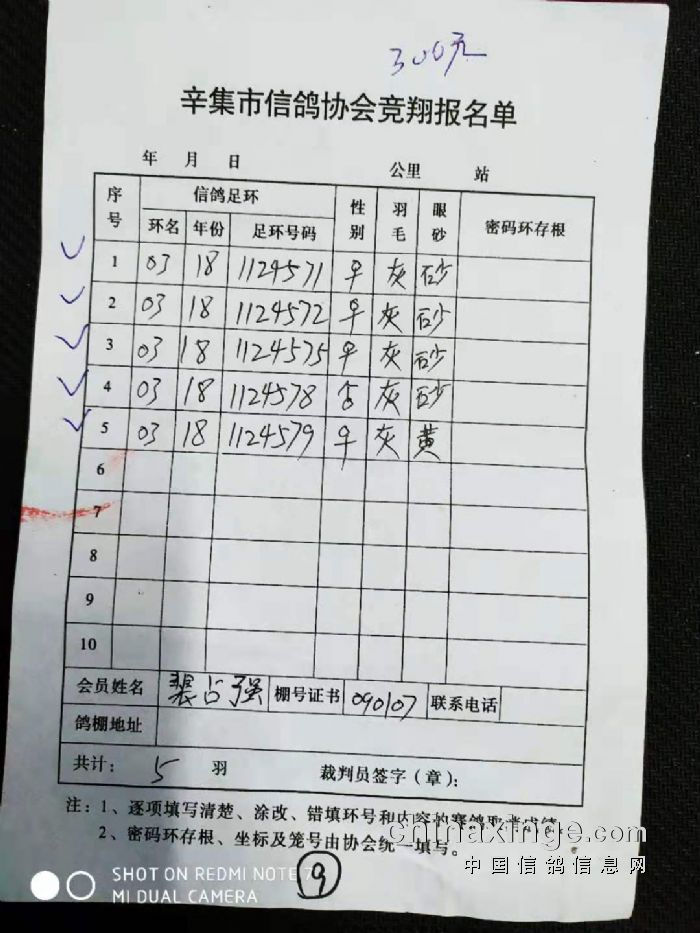 300元
辛集市信鸽协会竞翔报名单
年 月 日 公里 站
序号 信鸽足环 性别 羽毛 眼砂 密码环存根
环名 年份 足环号码
1 03 18 1124571 灰 砂
2 03 18 1124572 灰 砂
3 03 18 1124575 灰 砂
4 03 18 1124578 灰 砂
5 03 18 1124579 灰 黄
6
7
8
9
10
会员姓名 占强 棚号证书 090107 联系电话
鸽棚地址
共计： 5 羽 裁判员签字（章）：
注：1、逐项填写清楚、涂改、错填环号和内容的赛鸽取消成绩
2、密码环存根、坐标及笼号由协会统一填写。
chinaxinge.com
中国信鸽信息网
SHOT ON REDMI NOTE 7
MI DUAL CAMERA
9